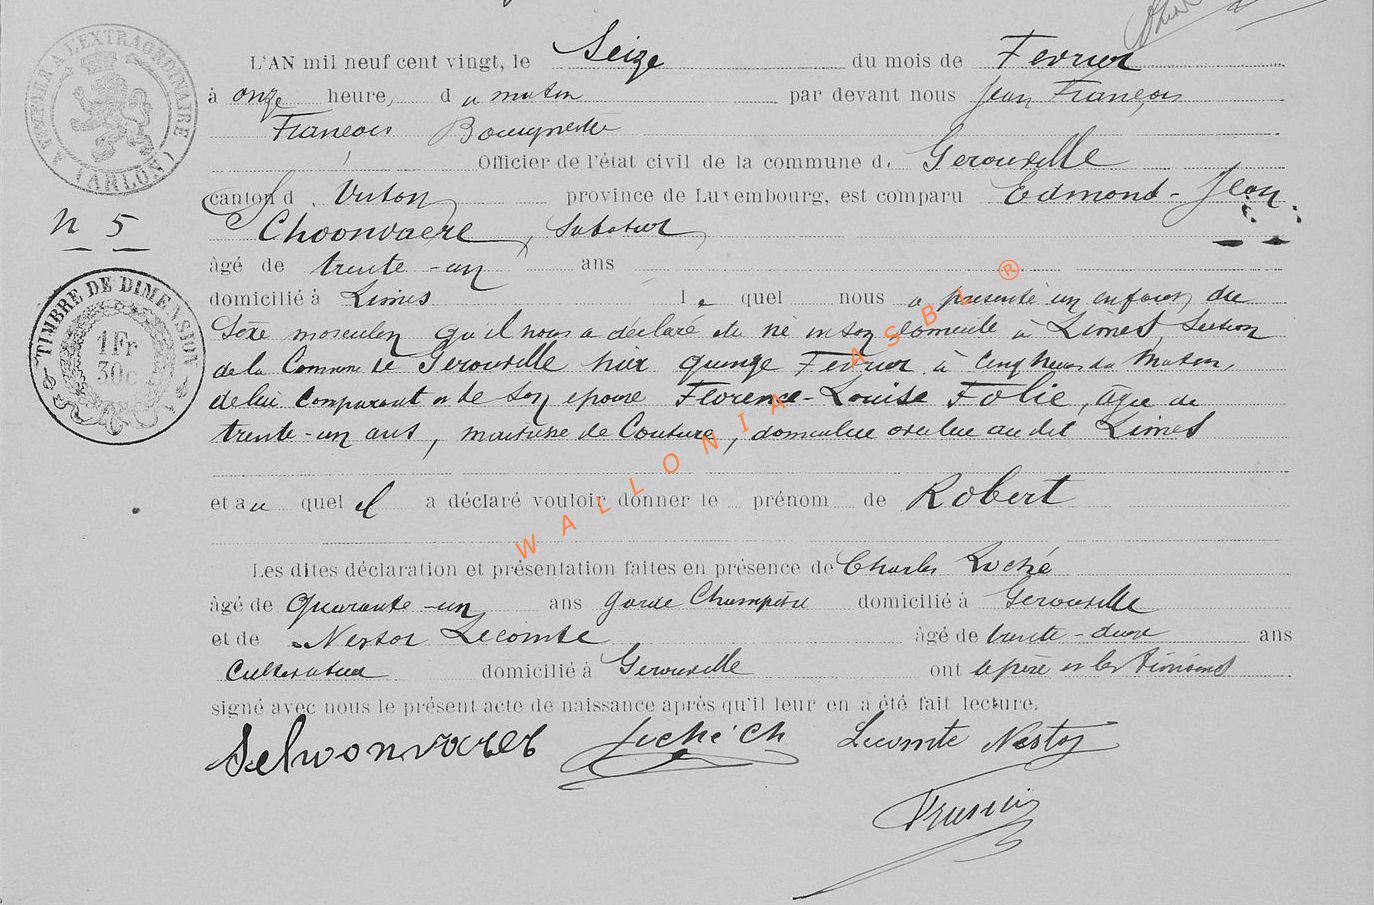 L'AN mil neuf cent vingt, le Seize du mois de Fevrier
à onze heure, du matin par devant nous Jean François,
François Bourgmestre
Officier de l'état civil de la commune de Gerouville
canton d Virton province de Luxembourg, est comparu Edmond-Jean
Schoonvaere, Sabotier,
N 5
âgé de trente-un ans
domicilié à Limes lequel nous a présenté un enfant du
sexe masculin qu'il nous a déclaré être né en son domicile à Limes, section
de la Commune de Gerouville hier quinze Fevrier à cinq heures du Matin,
de lui comparant et de son epouse Florence-Louise Folie, âgée de
trente-un ans, domiciliée avec lui au dit Limes
et au quel il a déclaré vouloir donner le prénom de Robert
Les dites déclaration et présentation faites en présence de Charles Luché
âgé de Quarante-un ans Garde Champêtre domicilié à Gerouville
et de Nestor Lecomte âgé de ans
Cultivateur domicilié à Gerouville ont le père et les témoins
signé avec nous le présent acte de naissance après qu'il leur en a été fait lecture.
Luché Ch Lecomte Nestor
François
A L'EXTRAORDINAIRE (ARLON)
TIMBRE DE DIMENSION
1 Fr
30c
WALLONIA ASBL ®